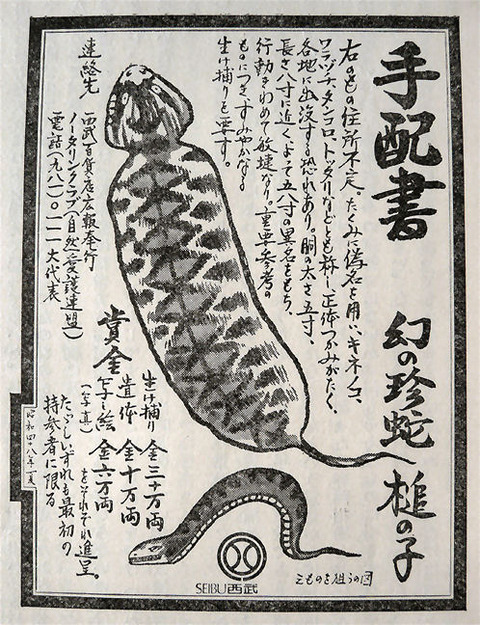 手配書
幻の珍蛇 槌の子
右のもの住所不定。たくみに偽名を用い、キネノコ、
ワニグチ、タンコロ、トックリなどとも称し正体つかみがたく、
各地に出没する恐れあり。胴の太さ五寸、
長さ八寸に近くよって五八寸の異名をもち、
行動きわめて敏捷なり。重要参考の
ものにつき、すみやかなる
生け捕りを要す。
連絡先
西武百貨店広報奉行
ノータリンクラブ(自然愛護連盟)
電話(九八一)〇一一一大代表
賞金
生け捕り 金三十万両
遺体 金十万両
写し絵 金六万両
(写真)
をそれぞれ進呈。
ただし、いずれも最初の
持参者に限る
昭和四十八年一夏
SEIBU西武
えものを狙うの図